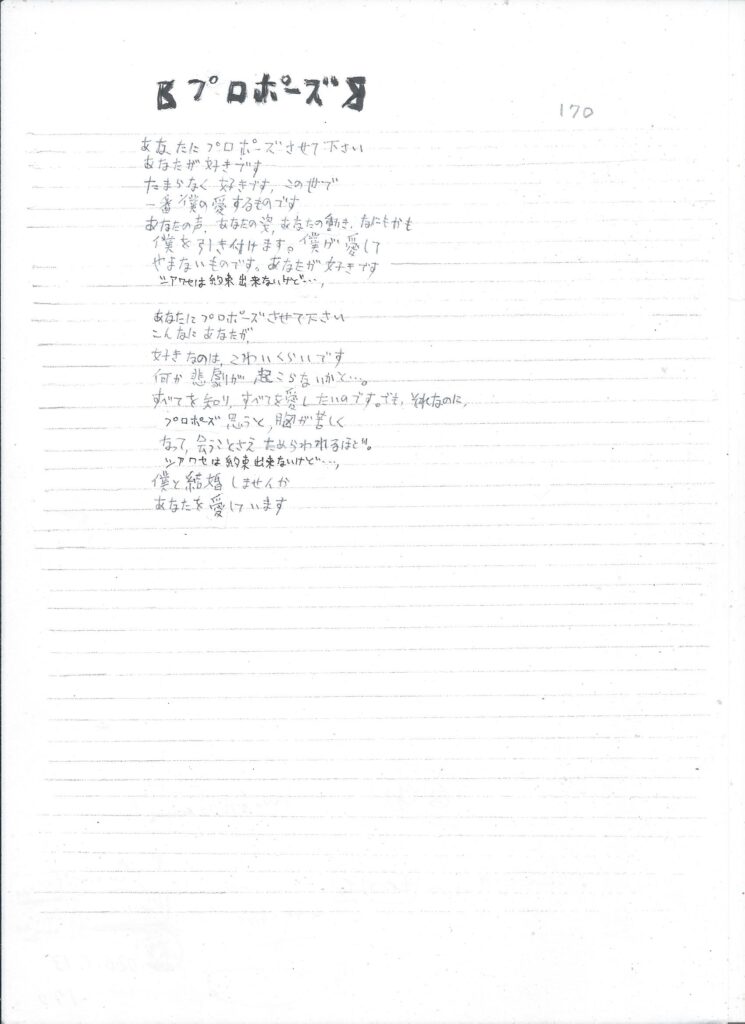 【プロポーズ】
170
あなたにプロポーズさせて下さい
あなたが好きです
たまらなく好きです、この世で
一番僕の愛するものです
あなたの声、あなたの姿、あなたの動き、なにもかも
僕を引き付けます。僕が愛して
やまないものです。あなたが好きです
シアワセは約束出来ないけど…、
あなたにプロポーズさせて下さい
こんなにあなたが、
好きなのは、こわいくらいです
何か悲劇が起こらないかと…。
すべてを知り、すべてを愛したいのです。でも、それなのに、
プロポーズ思うと、胸が苦しく
なって、会うことさえためらわれるほど。
シアワセは約束出来ないけど…、
僕と結婚しませんか
あなたを愛しています